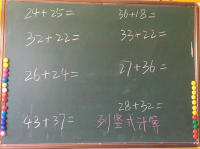 24+25=
36+18=
32+22=
33+22=
26+24=
27+36=
28+32=
43+37=
列竖式计算